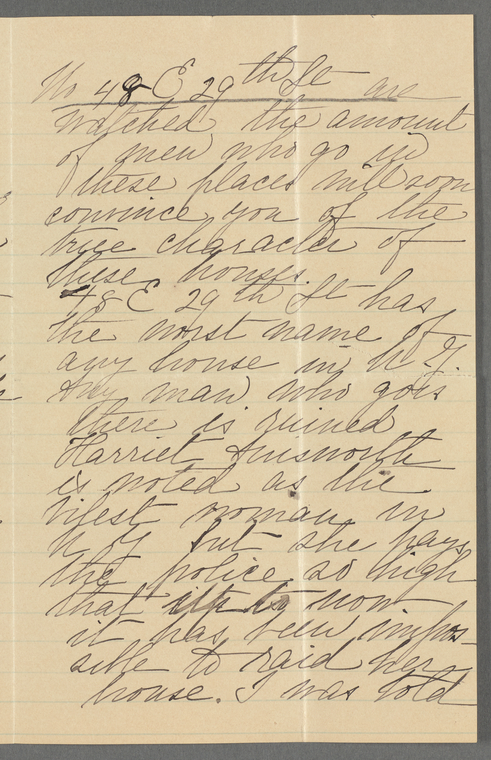 No 48 E 29th St are
watched the amount
of men who go in
these places will soon
convince you of the
true character of
these houses.
48 E 29th St has
the worst name of
any house in N.Y.
Any man who goes
there is ruined
Harriet Ainsworth
is noted as the
vilest woman in
N Y but she pays
the police so high
that now
it has been impos-
sible to raid her
house. I was told